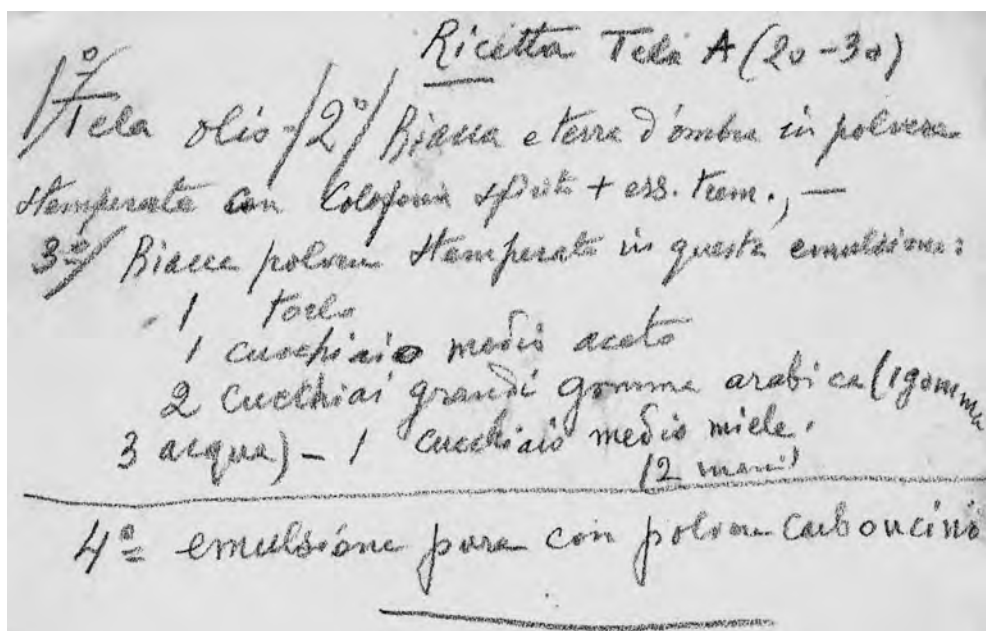 Ricetta Tela A (20-30)
1º/ Tela olio - /2º/ Biacca e terra d'ombra in polvere
stemperata con Colofonia spirito + ess. trem., —
3º/ Biacca polvere stemperata in questa emulsione:
1 torlo
1 cucchiaio medio aceto
2 cucchiai grandi gomma arabica (1 gomma
3 acqua) - 1 cucchiaio medio miele.
(2 mani)
4º = emulsione pura con polvere carboncino